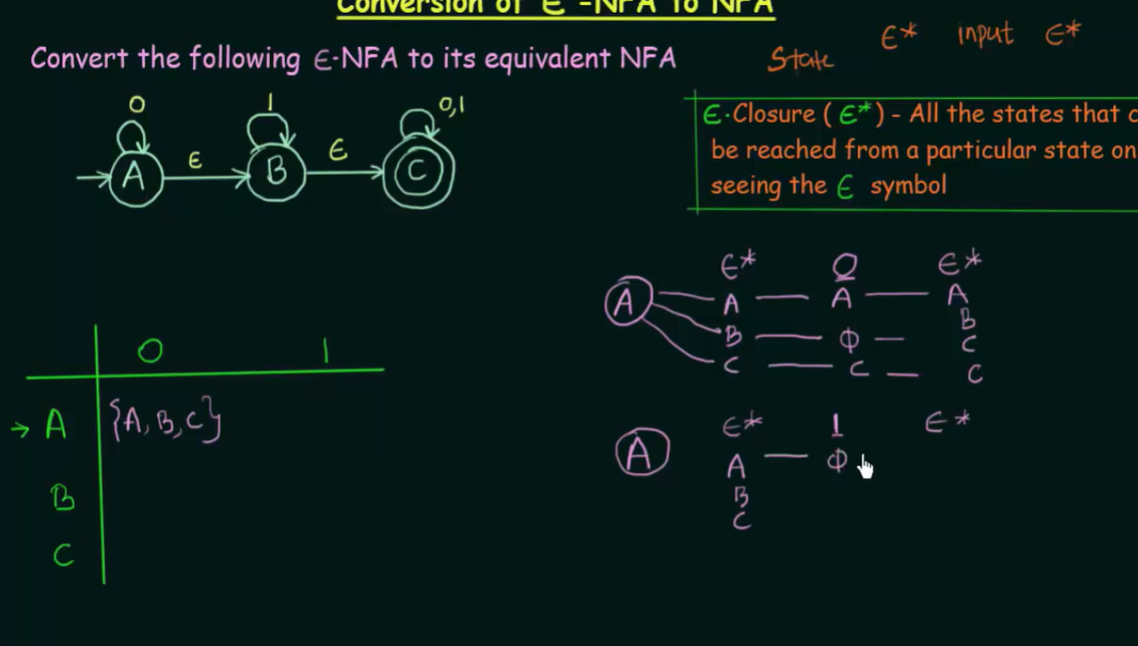 Conversion of ε -NFA to NFA
Convert the following ε-NFA to its equivalent NFA
State ε* input ε*
0 1 0,1
A ε B ε C
ε-Closure ( ε* ) - All the states that
be reached from a particular state on
seeing the ε symbol
ε* 0 ε*
A A A A
B
B Φ C
C C C
0 1
→ A {A, B, C}
B
C
ε* 1 ε*
A A Φ
B
C